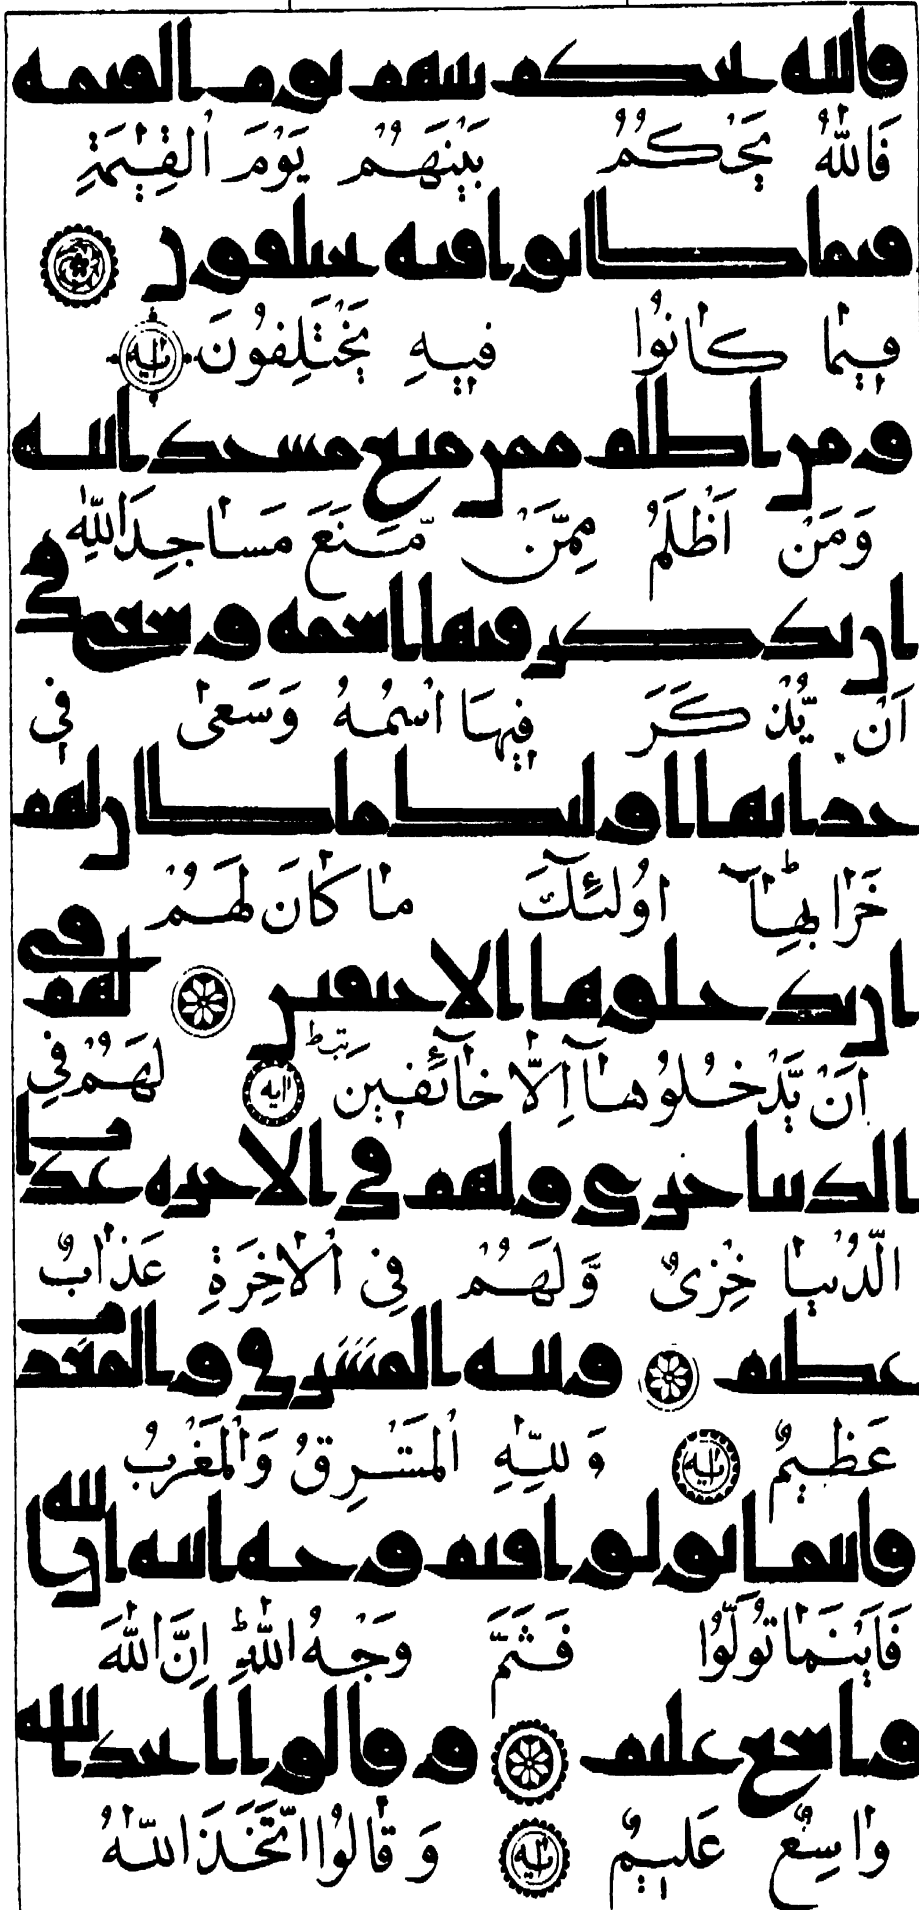 فالله يحكم بينهم يوم القيمه
فَاللّٰهُ يَحْكُمُ بَيْنَهُمْ يَوْمَ الْقِيٰمَةِ
فيما كانوا فيه يختلفون
فِيْمَا كَانُوْا فِيْهِ يَخْتَلِفُوْنَ اٰيه
ومن اظلم ممن منع مسجد الله
وَمَنْ اَظْلَمُ مِمَّنْ مَّنَعَ مَسَاجِدَ اللّٰهِ
ان يذكر فيها اسمه وسعى في
اَنْ يُّذْكَرَ فِيْهَا اسْمُهٗ وَسَعٰى فِيْ
خرابها اولئك ما كان لهم
خَرَابِهَاؕ اُولٰٓئِكَ مَا كَانَ لَهُمْ
ان يدخلوها الا خيفين لهم في
اَنْ يَّدْخُلُوْهَآ اِلَّا خَآئِفِيْنَ اٰيه لَهُمْ فِي
الدنيا خزي ولهم في الاخره عذاب
الدُّنْيَا خِزْىٌ وَّلَهُمْ فِى الْاٰخِرَةِ عَذَابٌ
عظيم ولله المشرق والمغرب
عَظِيْمٌ اٰيه وَلِلّٰهِ الْمَشْرِقُ وَالْمَغْرِبُ
فاينما تولوا فثم وجه الله ان الله
فَاَيْنَمَا تُوَلُّوْا فَثَمَّ وَجْهُ اللّٰهِؕ اِنَّ اللّٰهَ
واسع عليم وقالوا اتخذ الله
وَاسِعٌ عَلِيْمٌ اٰيه وَقَالُوا اتَّخَذَ اللّٰهُ